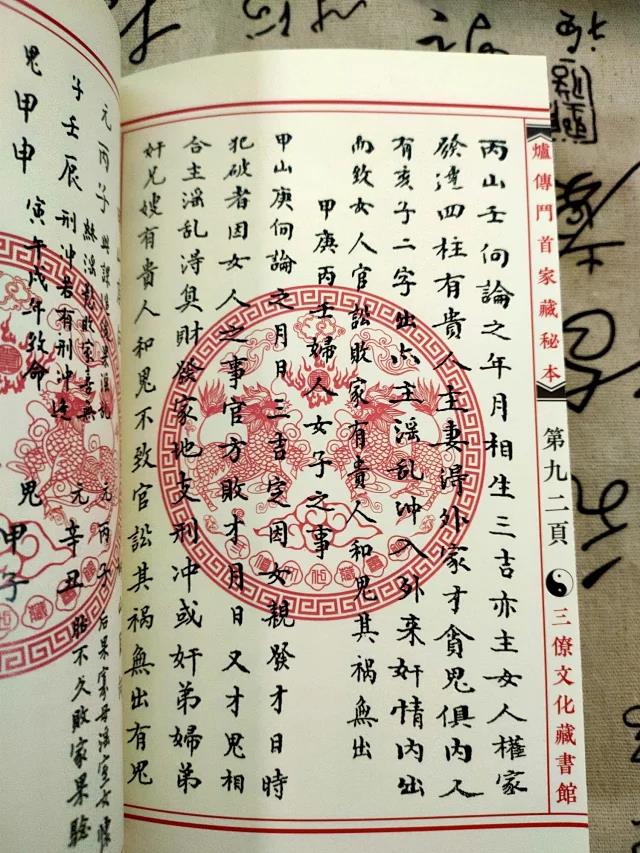 爐傳門首家藏秘本
第九二頁
三僚文化藏書館
丙山壬向論之年月相生三吉亦主女人權家
發達四柱有貴人主妻得外家才貪鬼俱内人
有亥子二字出六主淫乱冲入外来奸情内出
而致女人官訟敗家有貴人和鬼其禍無出
甲庚丙壬婦人女子之事
甲山庚向論之月日三吉定因女親發才日時
犯破者因女人之事官方敗才月日又才鬼相
合主淫乱得臭財發家地支刑冲或奸弟婦弟
奸兄嫂有貴人和鬼不致官訟其禍無出有鬼
元丙子
元丙子 后果家母淫室女
子壬辰 刑冲若有刑冲
元辛丑 不久敗家果驗
鬼甲申 寅午戌年致命
鬼甲子